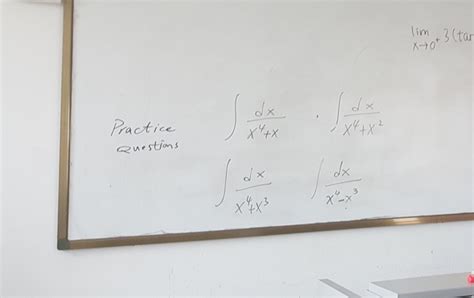 lim
x→0⁺ 3(tan
Practice
Questions
∫ dx/(x⁴+x) · ∫ dx/(x⁴+x²)
∫ dx/(x⁴+x³) ∫ dx/(x⁴-x³)